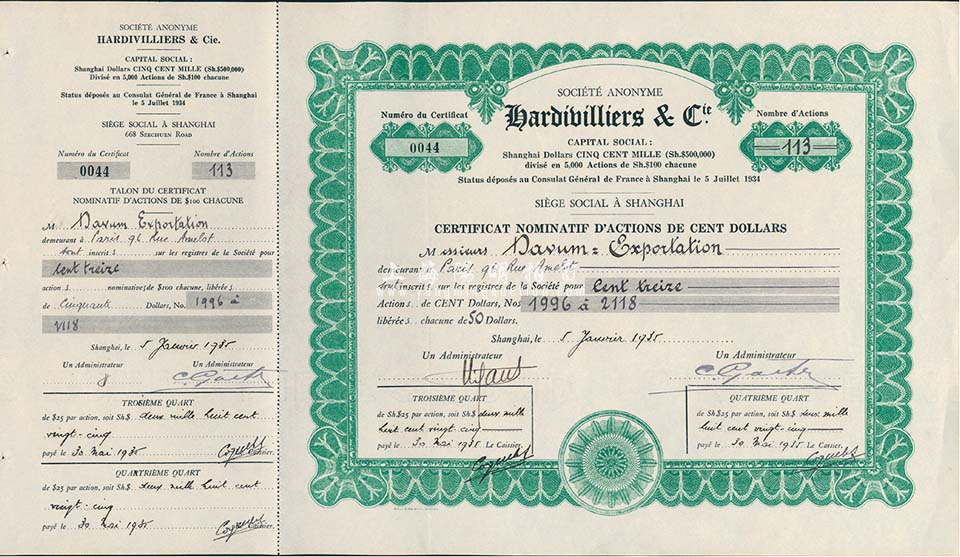 SOCIÉTÉ ANONYME
HARDIVILLIERS & Cie.
CAPITAL SOCIAL :
Shanghai Dollars CINQ CENT MILLE (Sh.$500,000)
Divisé en 5,000 Actions de Sh.$100 chacune
Status déposés au Consulat Général de France à Shanghai
le 5 Juillet 1934
SIÈGE SOCIAL À SHANGHAI
668 SZECHUEN ROAD
Numéro du Certificat Nombre d'Actions
0044 113
TALON DU CERTIFICAT
NOMINATIF D'ACTIONS DE $100 CHACUNE
M Davum Exportation
demeurant à Paris 96 Rue Amelot
sont inscrits sur les registres de la Société pour
Cent treize
actions nominatives de $100 chacune, libérées
de Cinquante Dollars, No. 1996 à
2118
Shanghai, le 5 Janvier 1935
Un Administrateur Un Administrateur
TROISIÈME QUART
de $25 par action, soit Sh$ deux mille huit cent
vingt-cinq
payé le 30 mai 1935 Caissier.
QUATRIÈME QUART
de $25 par action, soit Sh$ deux mille huit cent
vingt-cinq
payé le 30 mai 1935 Caissier.
SOCIÉTÉ ANONYME
Hardivilliers & Cie.
Numéro du Certificat
0044
Nombre d'Actions
113
CAPITAL SOCIAL :
Shanghai Dollars CINQ CENT MILLE (Sh.$500,000)
divisé en 5,000 Actions de Sh.$100 chacune
Status déposés au Consulat Général de France à Shanghai le 5 Juillet 1934
SIÈGE SOCIAL À SHANGHAI
CERTIFICAT NOMINATIF D'ACTIONS DE CENT DOLLARS
Messieurs Davum = Exportation
demeurant Paris 96 Rue Amelot
sont inscrits sur les registres de la Société pour Cent treize
Actions de CENT Dollars, Nos 1996 à 2118
libérées chacune de 50 Dollars.
Shanghai, le 5 Janvier 1935
Un Administrateur Un Administrateur
TROISIÈME QUART
de Sh $25 par action, soit Sh$ deux mille
huit cent vingt-cinq
payé le 30 mai 1935 Le Caissier.
QUATRIÈME QUART
de Sh $25 par action, soit Sh$ deux mille
huit cent vingt-cinq
payé le 30 mai 1935 Le Caissier.